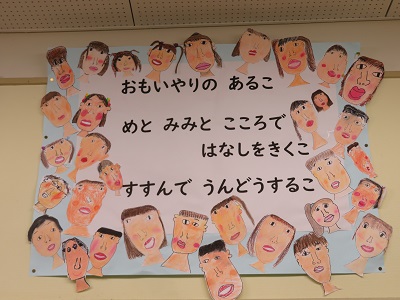 おもいやりの あるこ
めと みみと こころで
はなしをきくこ
すすんで うんどうするこ